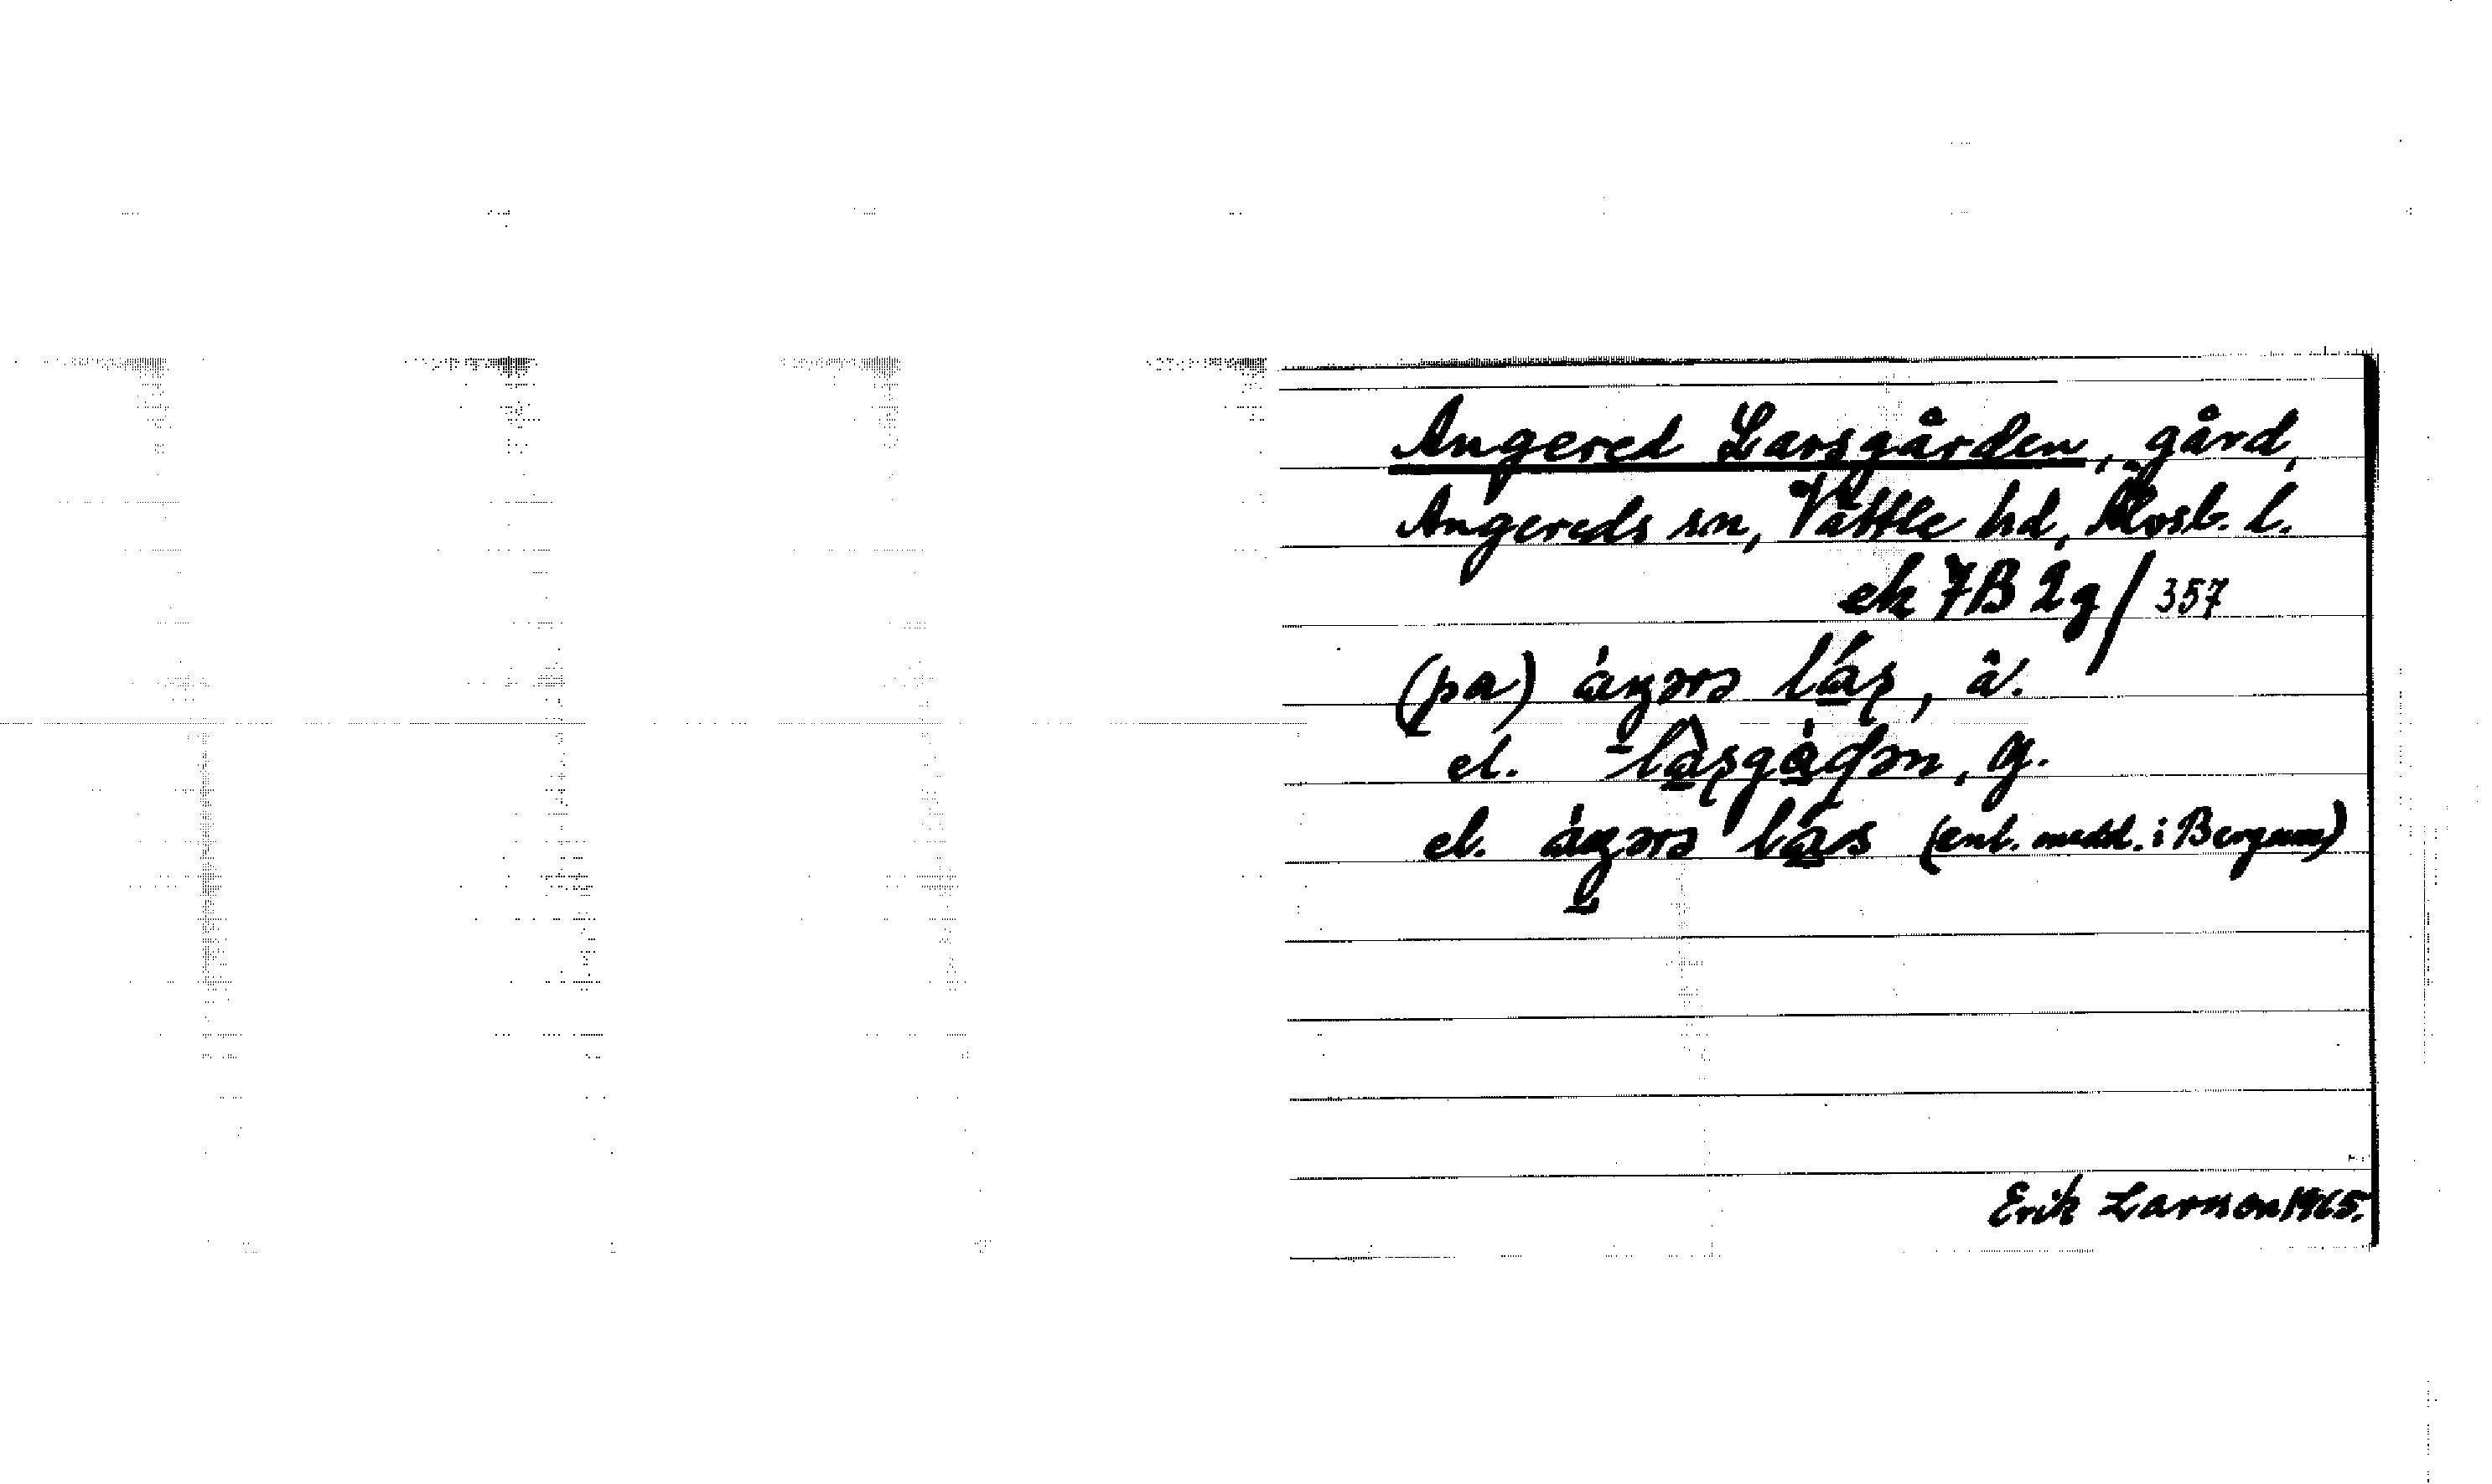 Angered Larsgården, gård,
Angereds sn, Vättle hd, Älvsb. l.
ek 7B 2g/357
(pa) áŋərə lás̩, å.
el. -làs̩gàɖən, g.
el. áŋərə lás (enl. medd. i Bergum)
Erik Larsson 1965.